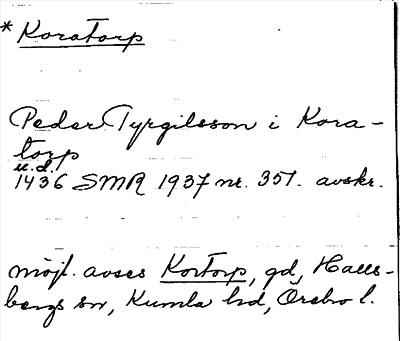 * Koratorp
Peder Tyrgilsson i Kora-
torp
u.d.
1436 SMR 1937 nr. 351. avskr.
möjl. avses Kortorp, gd, Halls-
bergs sn, Kumla hd, Örebro l.